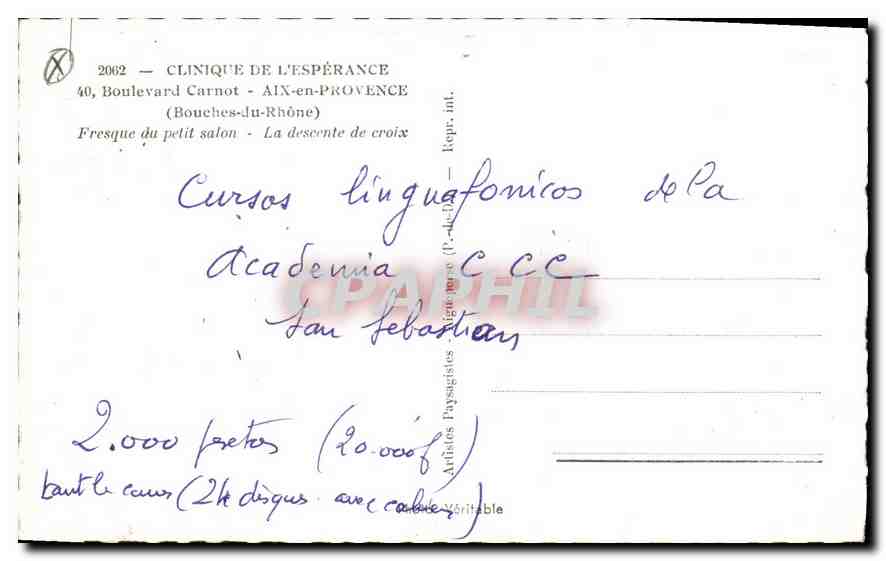 2062 — CLINIQUE DE L'ESPÉRANCE
40, Boulevard Carnot - AIX-en-PROVENCE
(Bouches-du-Rhône)
Fresque du petit salon - La descente de croix
Cursos linguafonicos de la
Academia CCC
San Sebastian
2.000 pesetas (20.000f)
tout le cours (24 disques avec cahiers)
Artistes Paysagistes - Aigueperse (P.-de-D.) — Repr. int.
Photo Véritable
CPAPHIL